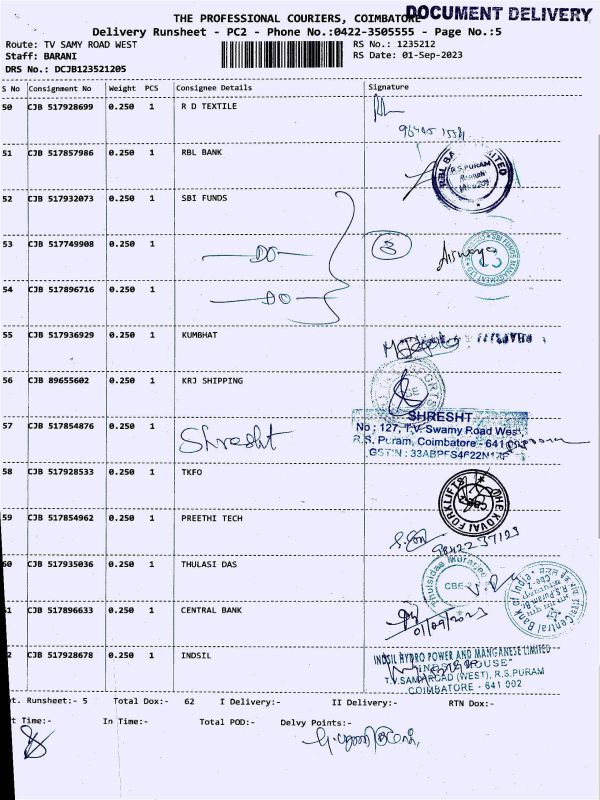 THE PROFESSIONAL COURIERS, COIMBATORE
DOCUMENT DELIVERY
Delivery Runsheet - PC2 - Phone No.:0422-3505555 - Page No.:5
Route: TV SAMY ROAD WEST RS No.: 1235212
Staff: BARANI RS Date: 01-Sep-2023
DRS No.: DCJB123521205
S No Consignment No Weight PCS Consignee Details Signature
50 CJB 517928699 0.250 1 R D TEXTILE
51 CJB 517857986 0.250 1 RBL BANK
R.S.PURAM
52 CJB 517932073 0.250 1 SBI FUNDS
53 CJB 517749908 0.250 1 DO 3
SBI FUNDS MANAGEMENT LTD
54 CJB 517896716 0.250 1 DO
55 CJB 517936929 0.250 1 KUMBHAT
56 CJB 89655602 0.250 1 KRJ SHIPPING
57 CJB 517854876 0.250 1 Shresht
SHRESHT
No : 127, T.V. Swamy Road West,
R.S. Puram, Coimbatore - 641
GSTIN :
58 CJB 517928533 0.250 1 TKFO
THE KOVAI FORKLIFTS
59 CJB 517854962 0.250 1 PREETHI TECH
60 CJB 517935036 0.250 1 THULASI DAS
CBE-2
61 CJB 517896633 0.250 1 CENTRAL BANK
Central Bank of India
01/09/2023
62 CJB 517928678 0.250 1 INDSIL
INDSIL HYDRO POWER AND MANGANESE LIMITED
"INDSIL HOUSE"
T.V.SAMY ROAD (WEST), R.S.PURAM
COIMBATORE - 641 002
t. Runsheet:- 5 Total Dox:- 62 I Delivery:- II Delivery:- RTN Dox:-
t Time:- In Time:- Total POD:- Delvy Points:-